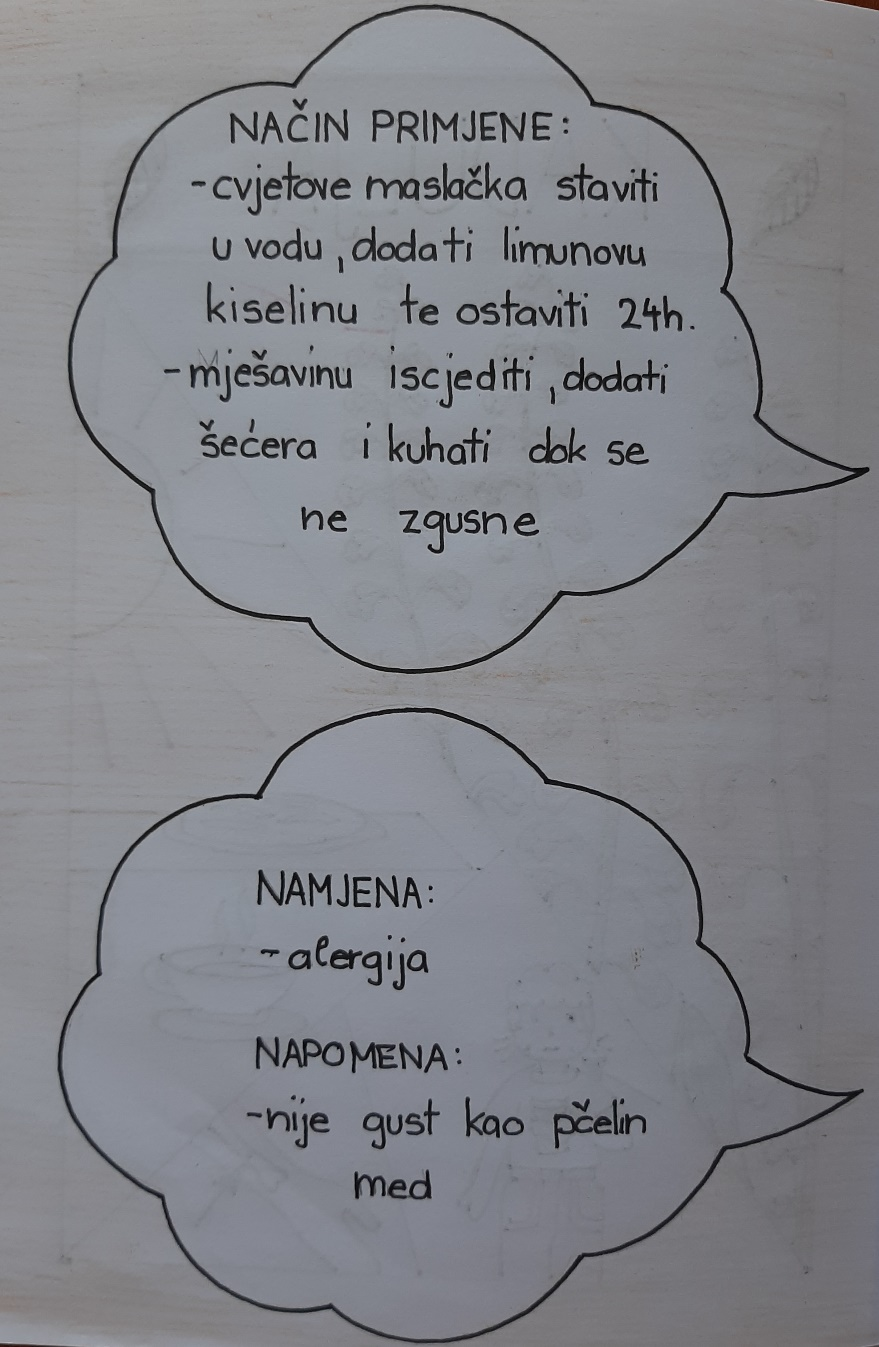 NAČIN PRIMJENE:
-cvjetove maslačka staviti
u vodu, dodati limunovu
kiselinu te ostaviti 24h.
-mješavinu iscjediti, dodati
šećera i kuhati dok se
ne zgusne
NAMJENA:
-alergija
NAPOMENA:
-nije gust kao pčelin
med